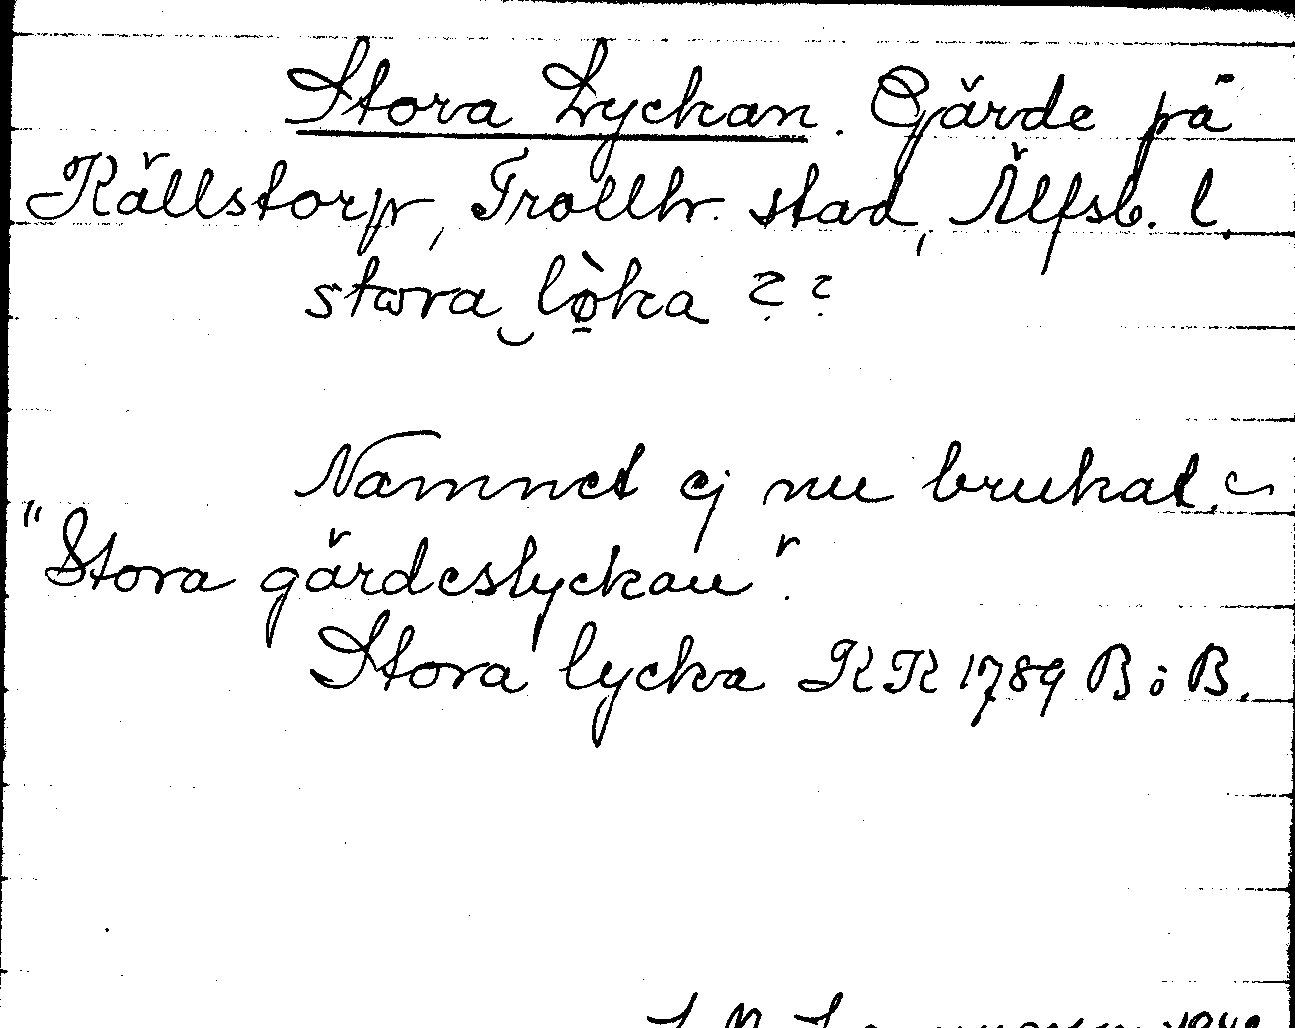 Stora Lyckan. Gärde på
Källstorp, Trollh. stad, Älfsb. l.
stora löka ??
Namnet ej nu brukat.
"Stora gärdeslyckan".
Stora lycka KK 1789 B:B.